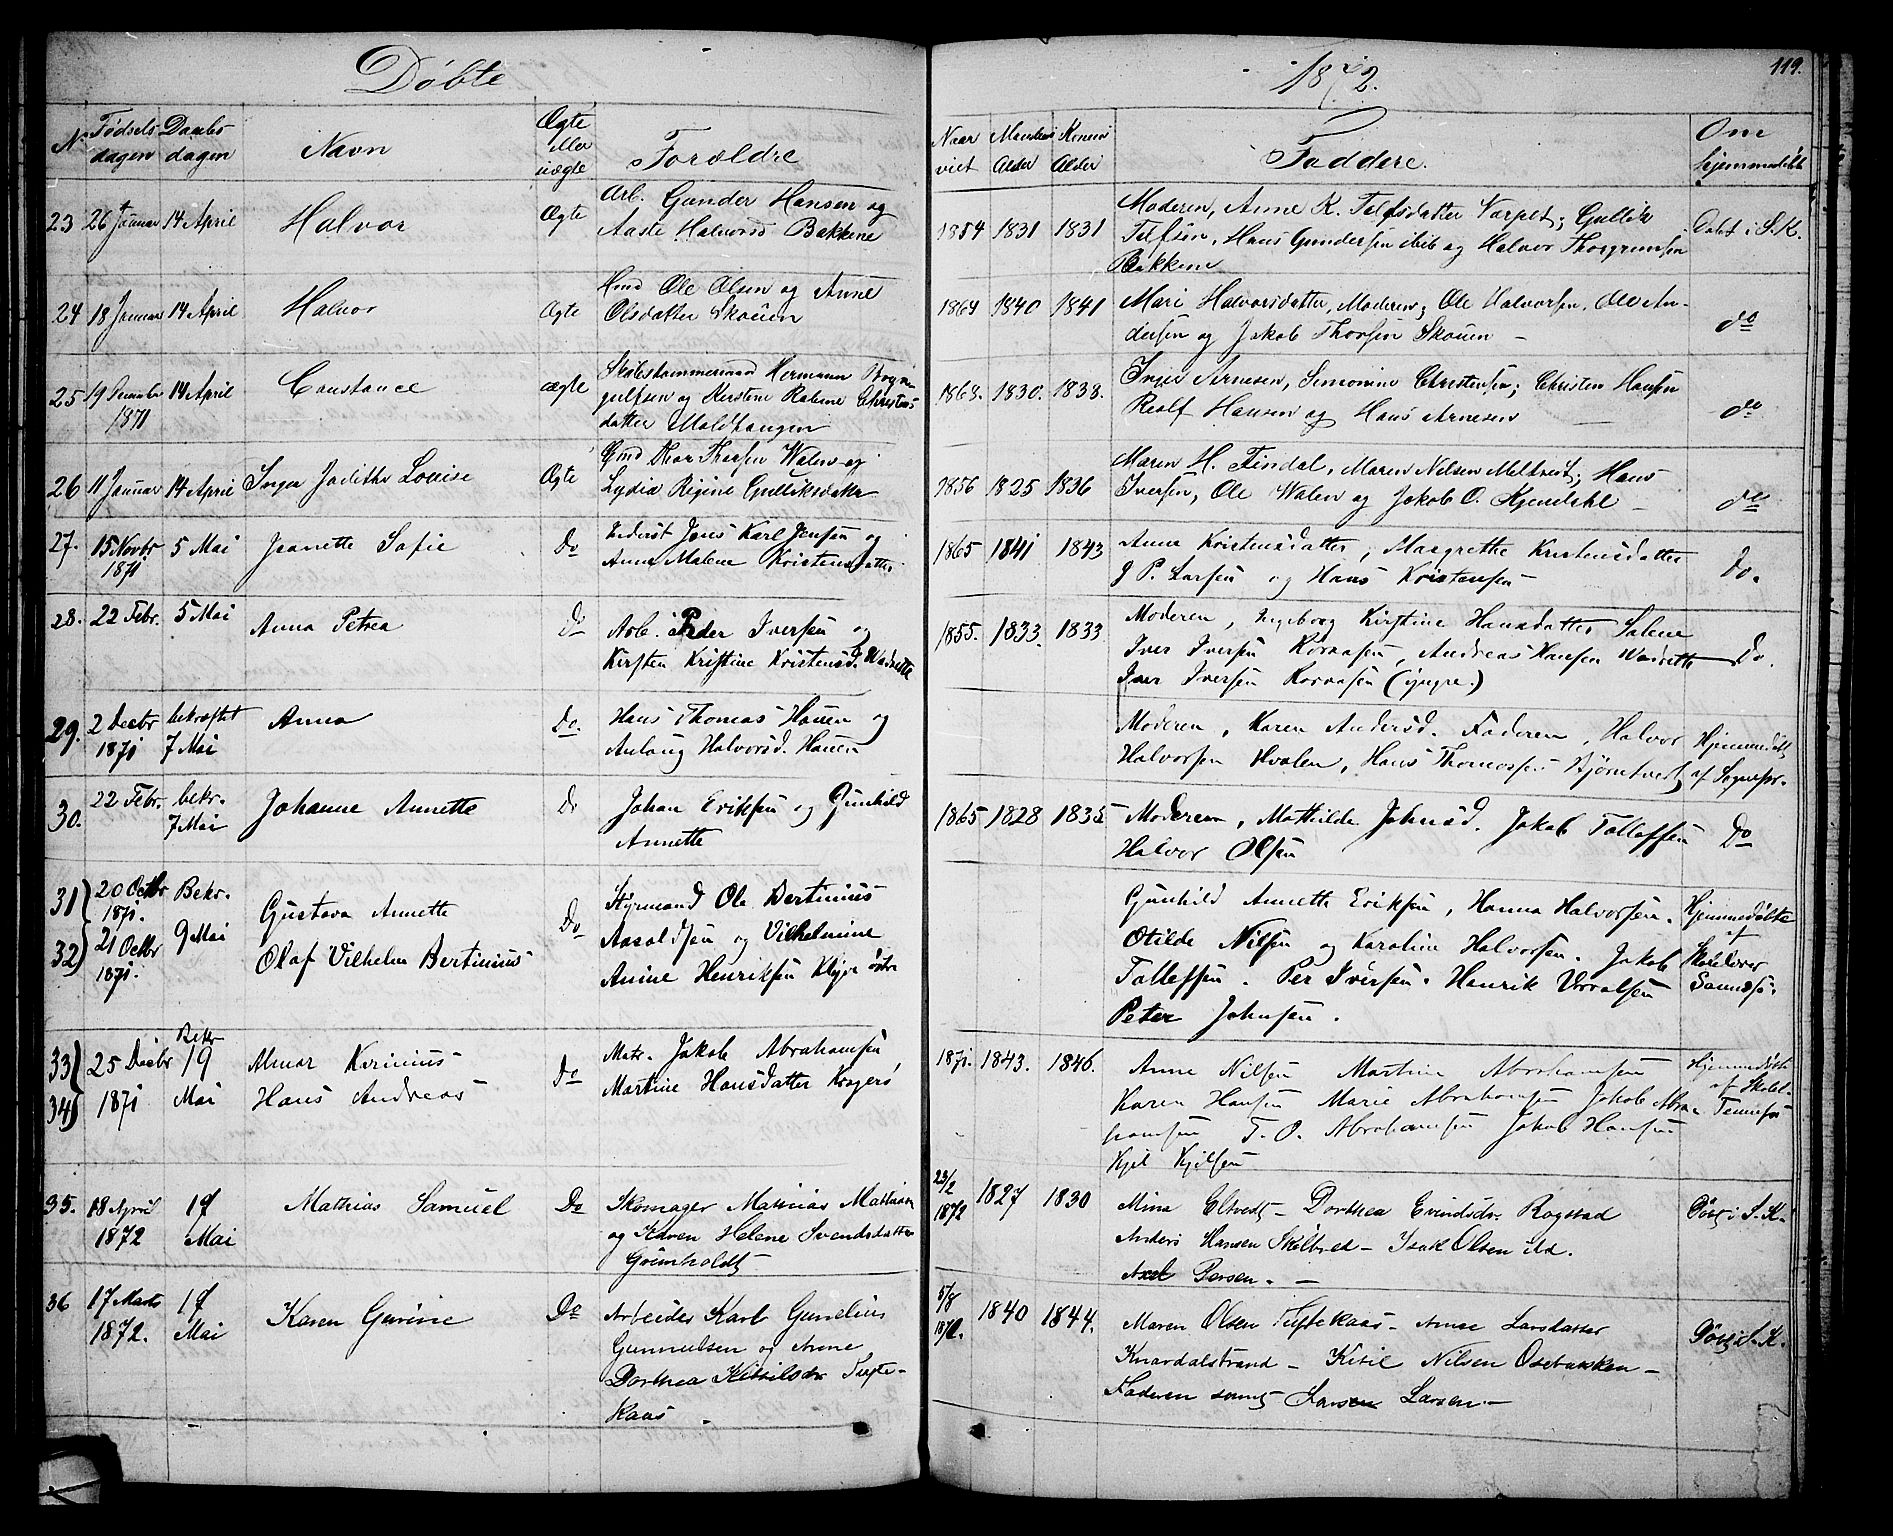 Døbte
1872.
119.
No
Fødsels
dagen
Daabs
dagen
Navn
Ægte
eller
uægte
Forældre
Naar
viet
Mandens
Alder
Konens
Alder
Faddere.
Om
hjemmedøbt
23 26 Januar 14 April Halvor Ægte
Arb. Gunder Hansen og
Aaste Halvorsd Bakkene
1854 1831 1831
Moderen, Anne K. Tolfsdatter Vorpet; Gullik
Tolfsen, Hans Gundersen ibid og Halvor Thorgrimsen
Bakkene
Døbt i S. K.
24 18 Januar 14 April Halvor Ægte
Hmd Ole Olsen og Anne
Olsdatter Skouen
1864 1840 1841
Mari Halvorsdatter, Moderen; Ole Halvorsen, Ole An-
dersen og Jakob Thorsen Skouen –
do
25 19 December 1871 14 April Constance ægte
Skibstømmermand Hermann
gulfsen og Kerstine Christens
datter
1868. 1830. 1838.
Inger Arnesen, Simonine Christensen; Christen Hansen
Realf Hansen og Hans Arnesen –
do
26 11 Januar 14 April Inga Judithe Louise Ægte
Thor Thorsen Walen og
Lydia Regine Gulliksdatr
1856 1825 1836
Maren H. Findal, Maren Nilsen Meltveit; Hans
Iversen, Ole Walen og Jakob O. Kjendahl –
do
27. 15 Novbr 1871 5 Mai Jeanette Sofie Do
Jens Karl Jensen og
Anne Malene Kristensdatter
1865 1841 1843
Anna Kristensdatter, Margrethe Kristensdatter
J P. Larsen og Hans Kristensen –
Do.
28. 22 Febr. 5 Mai Anna Petrea Do
Arb. Peder Iversen og
Kirsten Kristine Kristensd.
1855. 1833. 1833.
Moderen, Ingeborg Kirstine Hansdatter Salene
Iver Iversen Rorvasen, Andreas Hansen
Iver Iversen Rorvasen (yngre.)
Do.
29. 2 Decbr 1871 bekræftet 7 Mai Anna Do.
Hans Thomas Hauen og
Anlaug Halvorsd. Hauen
Moderen, Karen Andersd. Faderen, Halvor
Halvorsen Hvalen, Hans Thomassen Bjørntvet
Hjemmedøbt
af Sognepr.
30. 22 Febr. bekr. 7 Mai Johanne Annette Do
Johan Eriksen og Gunhild
Annette
1865 1828 1835
Moderen, Mathilde Johnsd. Jakob Tollefsen
Halvor Olsen
Do
31) 20 Octbr 1871. Bekr. Gustava Annette
32) 21 Octbr 1871. 9 Mai Olaf Vilhelm Bertinius Do
Styrmand Ole Bertinius
Aasoldsen og Vilhelmine
Amine Henriksen Klyve østre
Gunhild Annette Eriksen, Hanna Halvorsen.
Otilde Nilsen og Karoline Halvorsen. Jakob
Tollefsen. Per Iversen. Henrik
Peter Johnsen.
Hjemmedøbte
af
Skolelærer
33) 25 Decbr Bekr 19 Almar Kvirinius
34) 1871 Mai Hans Andreas Do
Matr. Jakob Abrahamsen
Martine Hansdatter Kragerø
1871. 1843. 1846.
Anne Nilsen Martine Abrahamsen
Karen Hansen Marie Abrahamsen Jakob Abra-
hamsen T. O. Abrahamsen Jakob Hansen
Kjel Kjelsen
Hjemmedøbte
af Skolel.
35. 18 April 1872 19 Mai Mathias Samuel Do
Skomager Mathias Mathisen
og Karen Helene Svendsdatter
Grimholdt
23/2 1872 1827 1830
Mina Eltvedt – Dorthea Evindsdr. Rogstad
Anders Hansen Skilbred – Isak Olsen ibd.
Axel Persen. –
Døbt i S. K.
36 17 Marts 1872. 19 Mai Karen Gurine Do
Arbeider Karl Gunelius
Gunnulsen og Anne
Dorthea Kittilsdr Tufte-
kaas –
5/8 1872. 1840 1844.
Maren Olsen Tuftekaas – Anne Larsdatter
Knardalstrand – Kitil Nilsen Osebakken –
Faderen samt Larsen –
Døbt i S. K.